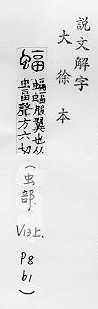 說文解字
大徐本
蝠
蝙蝠服翼也从
虫畐聲方六切
(虫部
V13上.
P8
b1
)